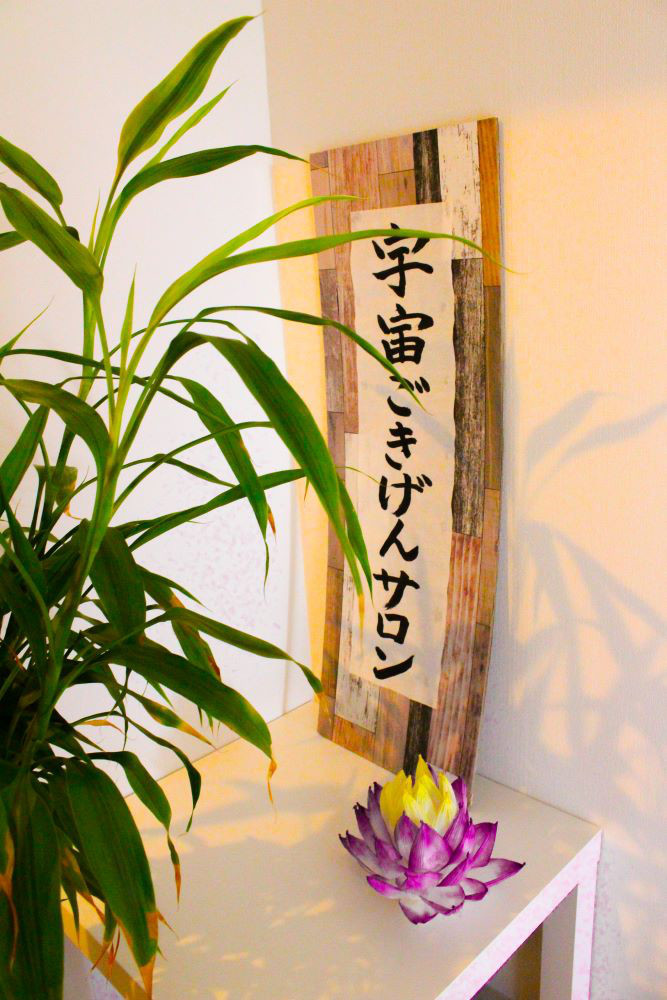 宇宙ごきげんサロン